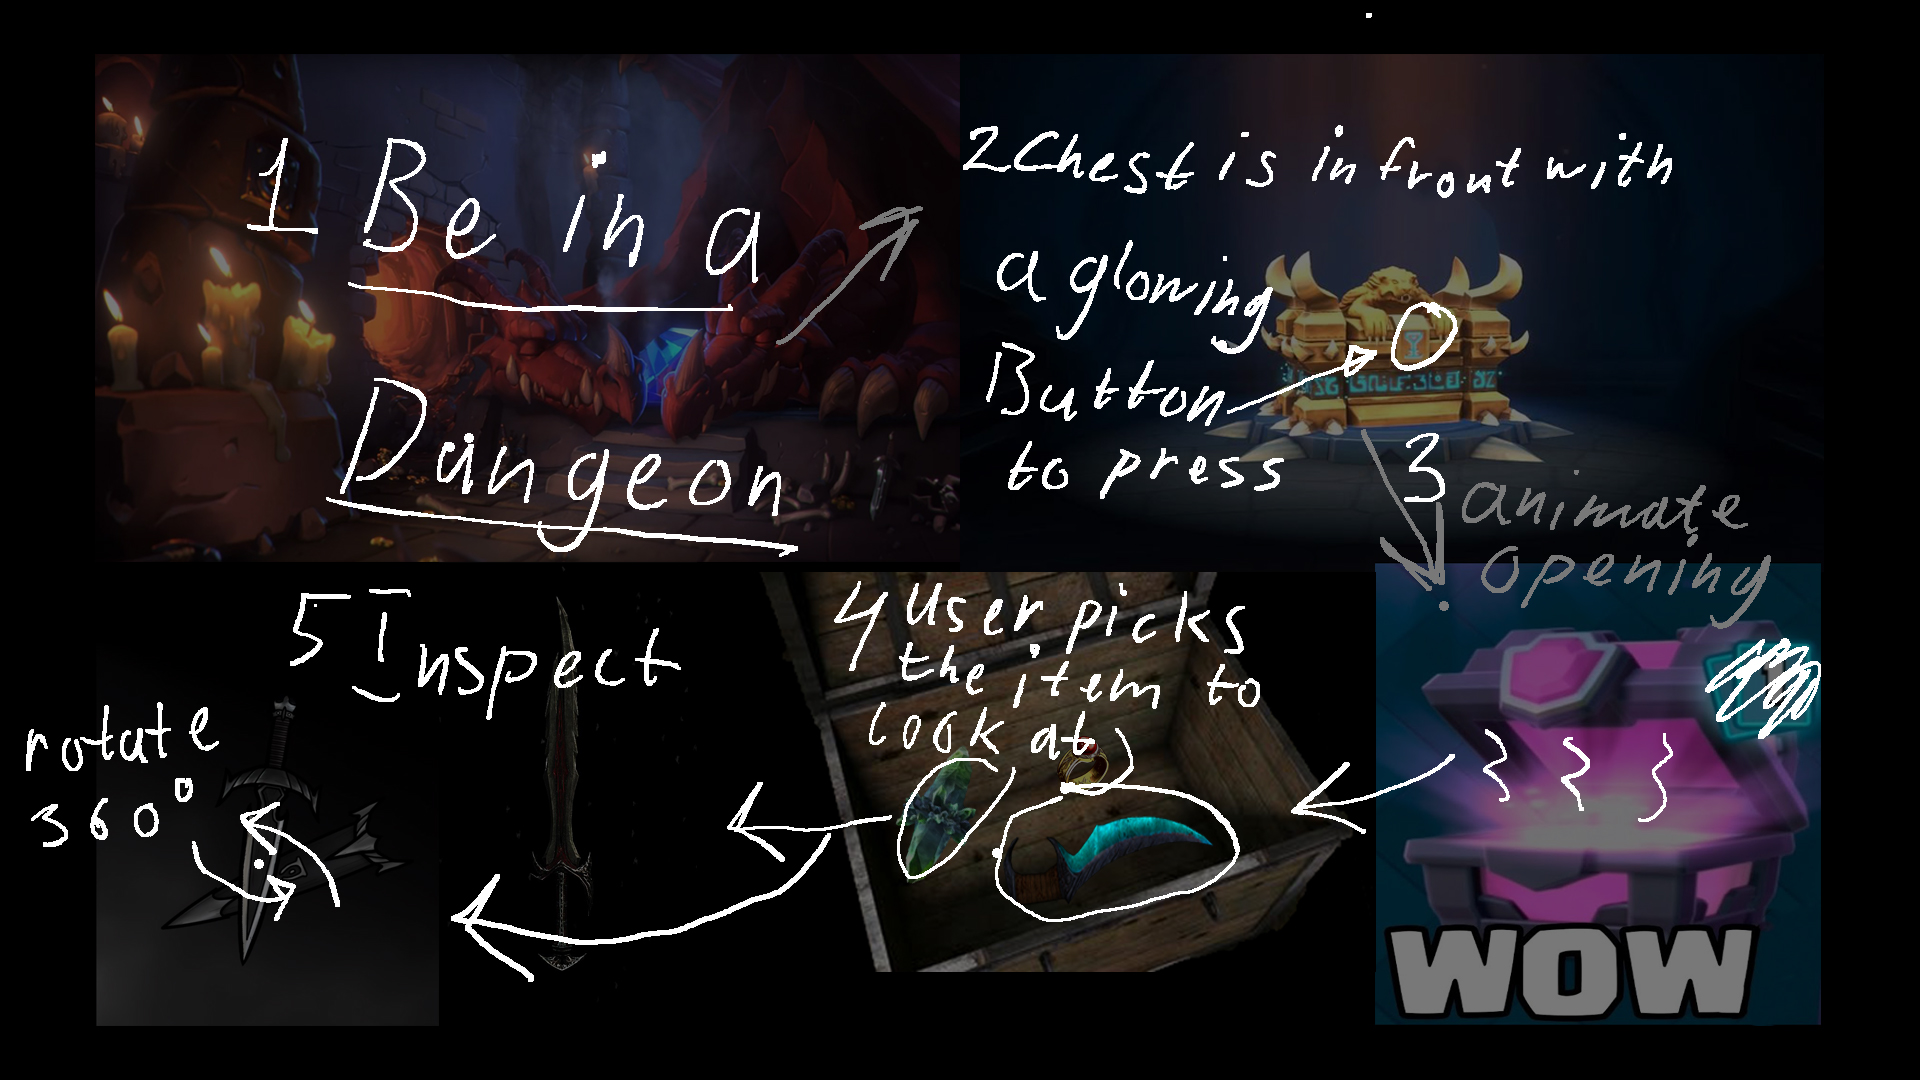 1 Be in a
Dangeon
2 Chest is in front with
a glowing
Button
to press
3
animate
opening
4 User picks
the item to
look at
5 Inspect
rotate
360°
WOW